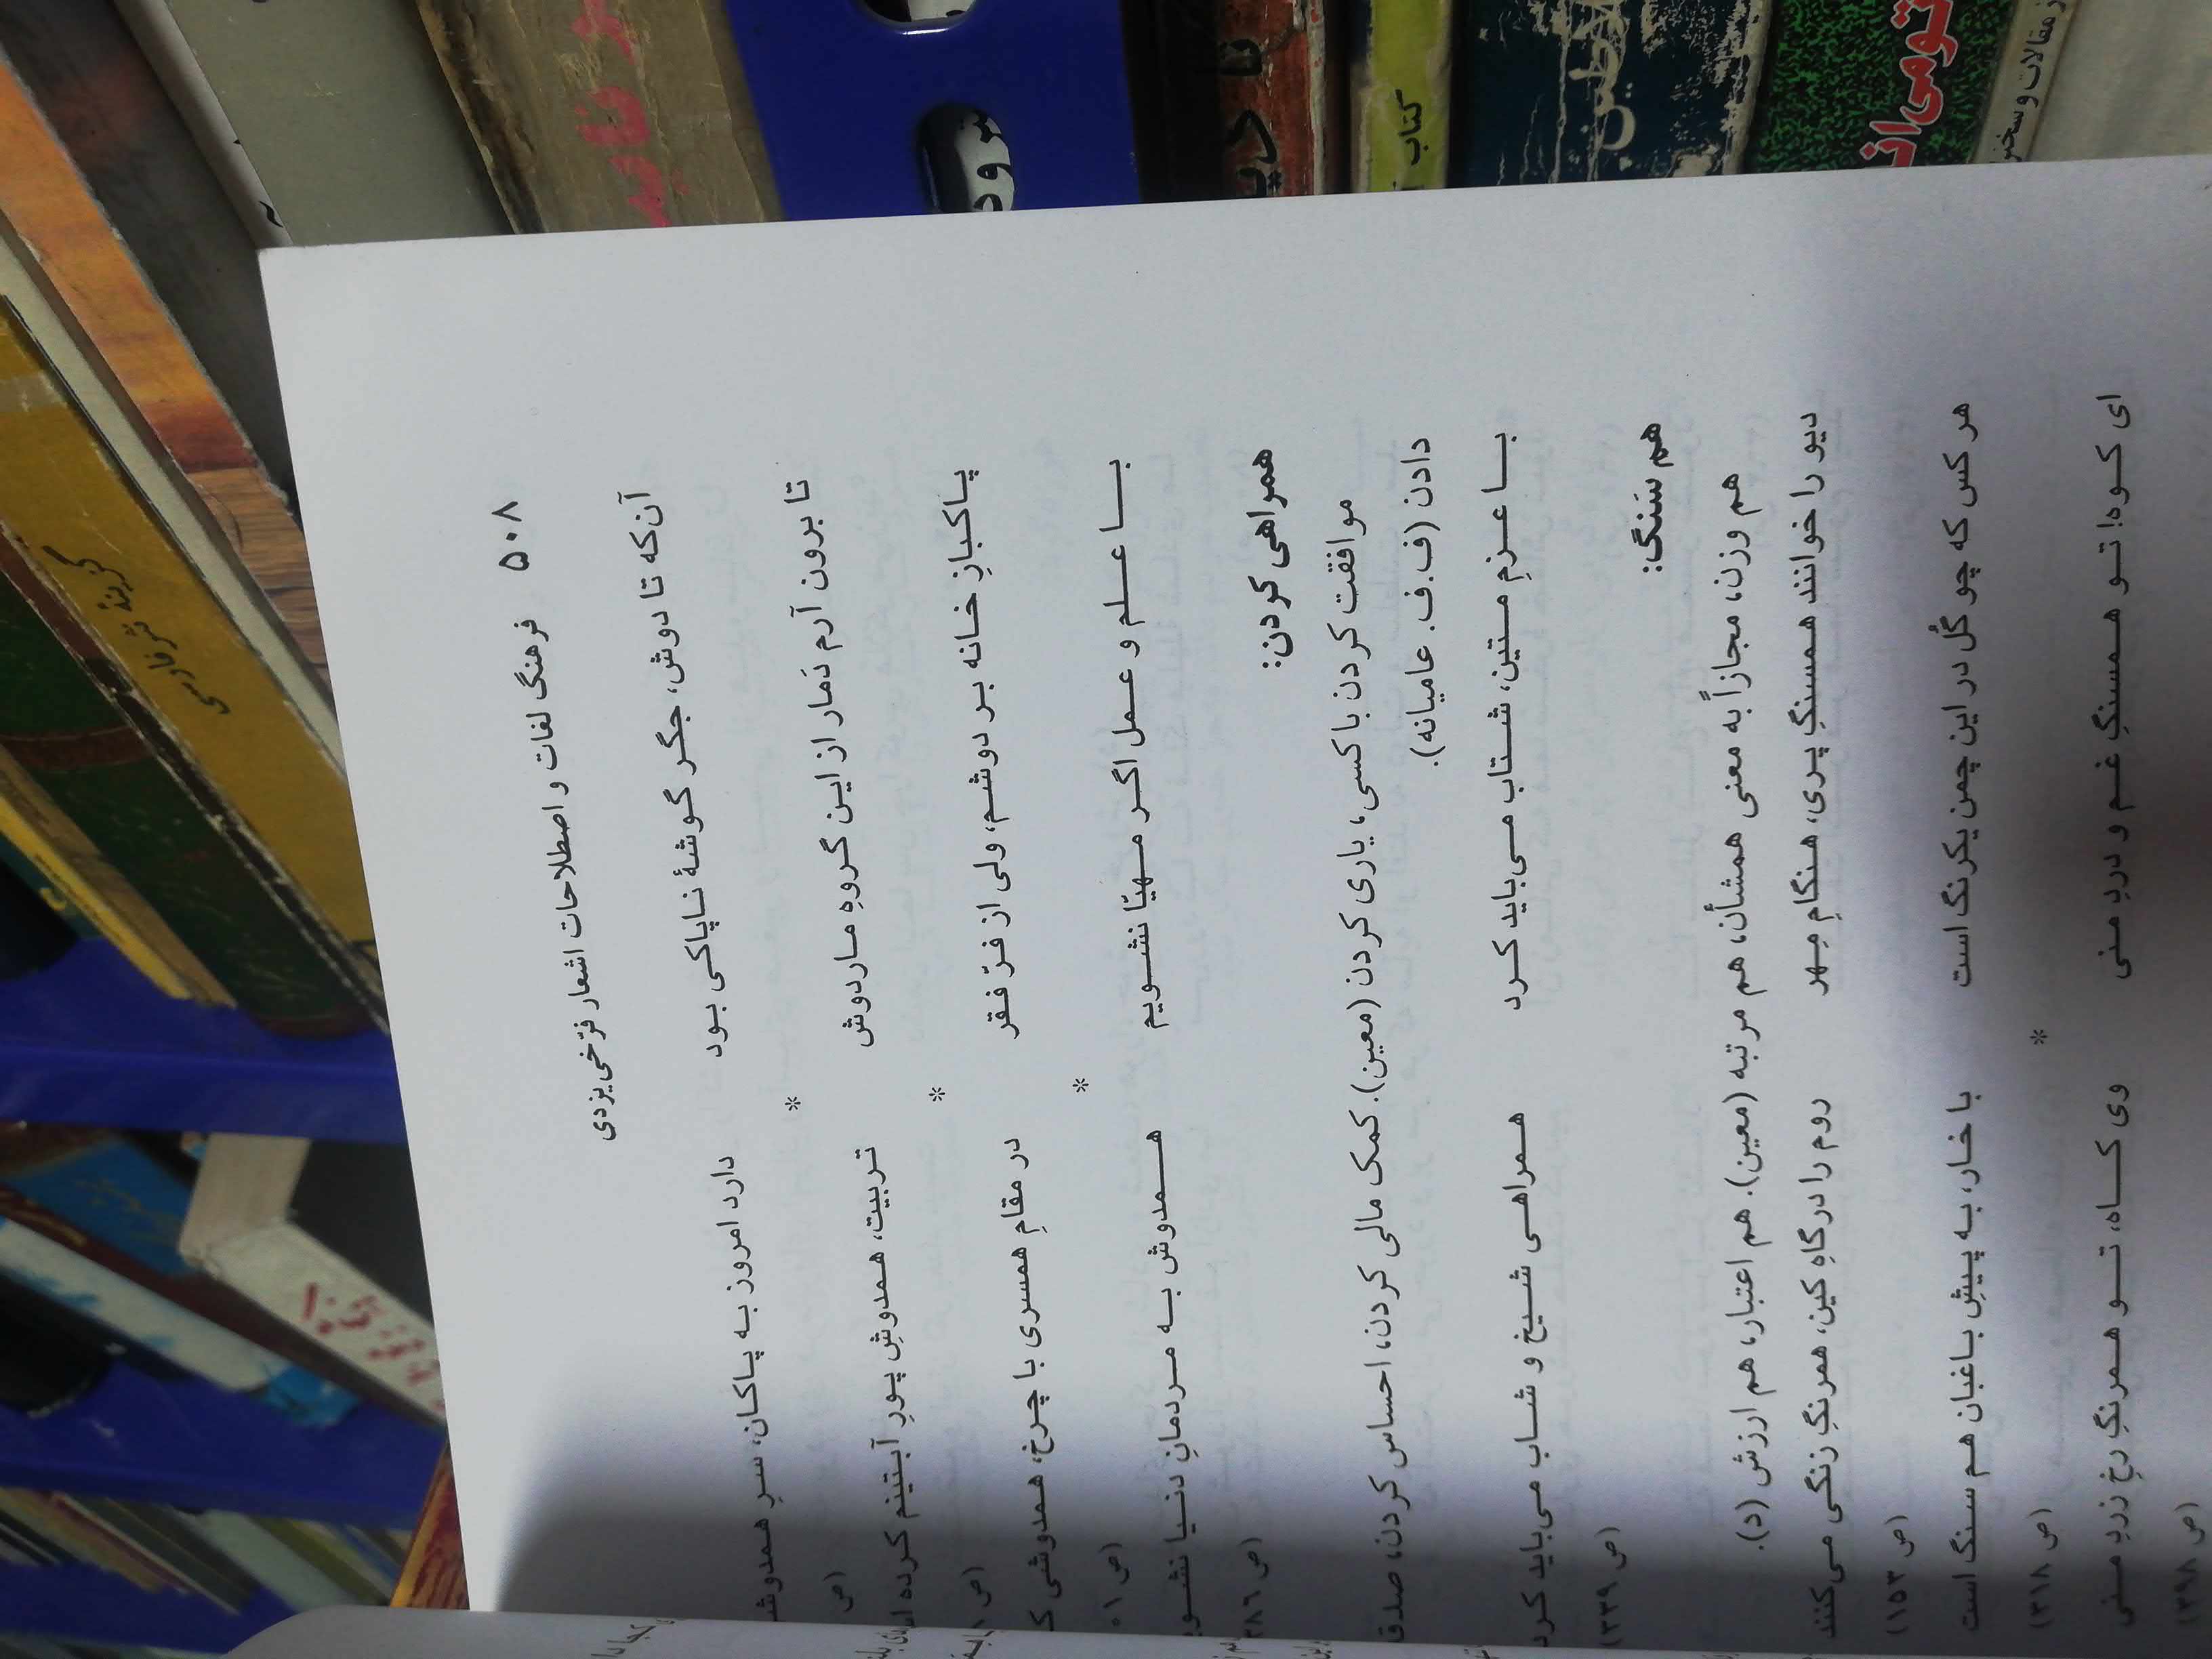 ۵۰۸ فرهنگ لغات و اصطلاحات اشعار فرّخی یزدی
آن‌که تا دوش، جگر گوشهٔ ناپاکی بود دارد امروز به پاکان، سرِ
(ص
*
تا برون آرم دَمار از این گروهِ ماردوش تربیت، همدوشِ پورِ آبتینم کرده
(ص
*
پاکبازِ خانه بر دوشم، ولی از فرّ فقر در مقامِ همسری با چرخ، همدوشی
(ص
*
با علم و عمل اگر مهیّا نشویم همدوش به مردمانِ دنیا
(ص
همراهی کردن:
موافقت کردن با کسی، یاری کردن (معین). کمک مالی کردن، احساس کردن، صدقه
دادن (ف.ف. عامیانه).
با عزمِ متین، شتاب می‌باید کرد همراهی شیخ و شاب می‌باید کرد
(ص ۲۳۹)
هم سَنگ:
هم وزن، مجازاً به معنی همشأن، هم مرتبه (معین). هم اعتبار، هم ارزش (د).
دیو را خوانند همسنگِ پری، هنگامِ مِهر روم را درگاهِ کین، همرنگِ زنگی می‌کنند
(ص ۱۵۳)
هر کس که چو گُل در این چمن یکرنگ است با خار، به پیشِ باغبان هم سنگ است
(ص ۲۱۸)
*
ای کوه! تو همسنگِ غم و دردِ منی وی کاه، تو همرنگِ رخِ زردِ منی
(ص ۲۹۸)
گزینهٔ نثر فارسی
کتاب